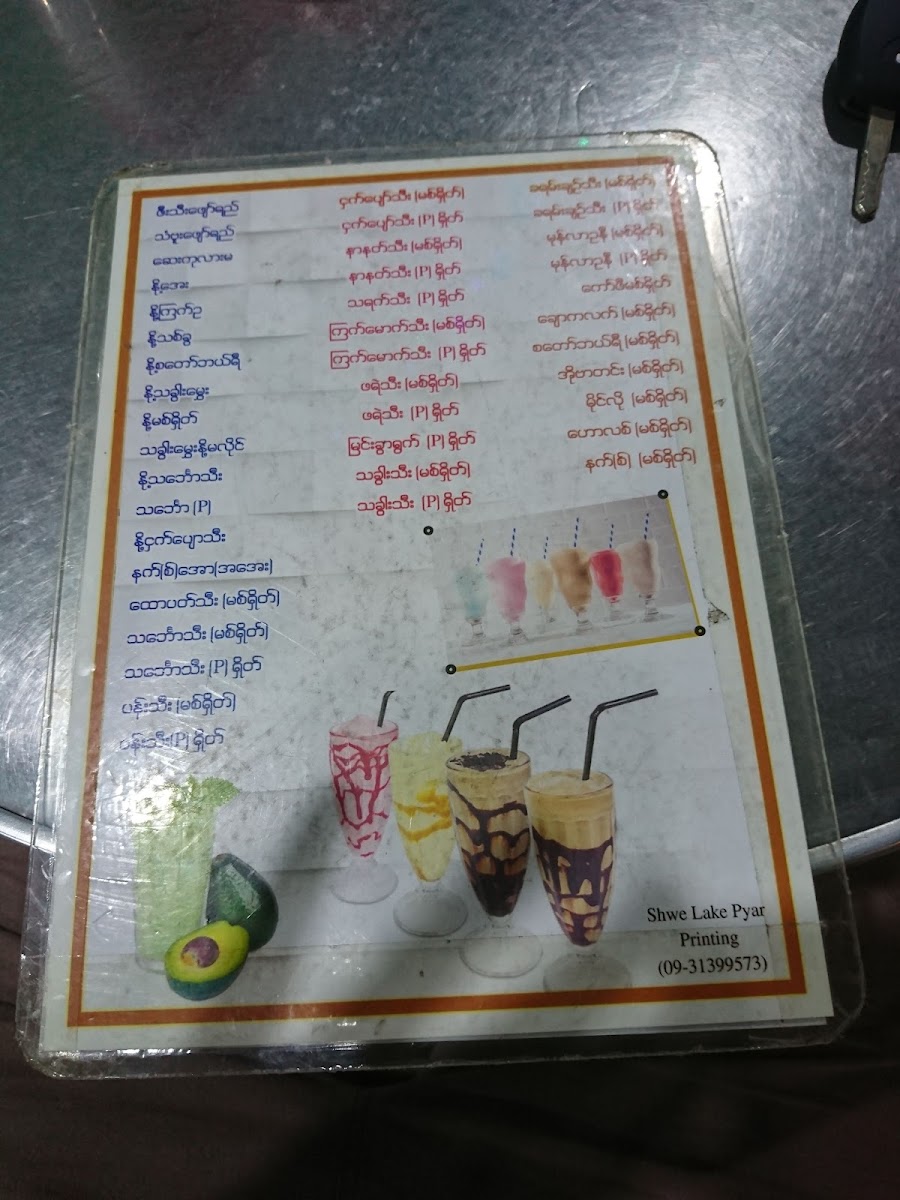 ဖီးသီးဖျော်ရည်
သံပူးဖျော်ရည်
ဆေးကုလားမ
နို့အေး
နို့ကြက်ဥ
နို့သစ်ခွ
နို့စတော်ဘယ်ရီ
နို့သခွါးမွှေး
နို့မစ်ရှိတ်
သခွါးမွှေးနို့မလိုင်
နို့သင်္ဘောသီး
သင်္ဘော (P)
နို့ငှက်ပျောသီး
နက်(စ်)အော(အအေး)
ထောပတ်သီး (မစ်ရှိတ်)
သင်္ဘောသီး (မစ်ရှိတ်)
သင်္ဘောသီး (P) ရှိတ်
ပန်းသီး (မစ်ရှိတ်)
ပန်းသီး(P) ရှိတ်
ငှက်ပျော်သီး (မစ်ရှိတ်)
ငှက်ပျော်သီး (P) ရှိတ်
နာနတ်သီး (မစ်ရှိတ်)
နာနတ်သီး (P) ရှိတ်
သရက်သီး (P) ရှိတ်
ကြက်မောက်သီး (မစ်ရှိတ်)
ကြက်မောက်သီး (P) ရှိတ်
ဖရဲသီး (မစ်ရှိတ်)
ဖရဲသီး (P) ရှိတ်
မြင်းခွာရွက် (P) ရှိတ်
သခွါးသီး (မစ်ရှိတ်)
သခွါးသီး (P) ရှိတ်
ခရမ်းချဉ်သီး (မစ်ရှိတ်)
ခရမ်းချဉ်သီး (P) ရှိတ်
မုန်လာဥနီ (မစ်ရှိတ်)
မုန်လာဥနီ (P) ရှိတ်
ကော်ဖီမစ်ရှိတ်
ချောကလက် (မစ်ရှိတ်)
စတော်ဘယ်ရီ (မစ်ရှိတ်)
အိုဗာတင်း (မစ်ရှိတ်)
မိုင်လို (မစ်ရှိတ်)
ဟောလစ် (မစ်ရှိတ်)
နက်(စ်) (မစ်ရှိတ်)
Shwe Lake Pyar
Printing
(09-31399573)